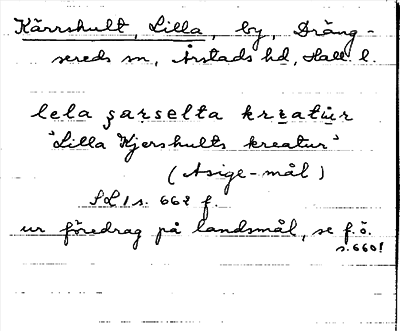 Kärrshult, Lilla, by, Dräng-
sereds sn, Årstads hd, Hall. l.
lela şarselta krɛatúr
"Lilla Kjershults kreatur"
(Asige-mål)
SL 1 s. 662 f.
ur föredrag på landsmål, se f.ö.
s. 660!